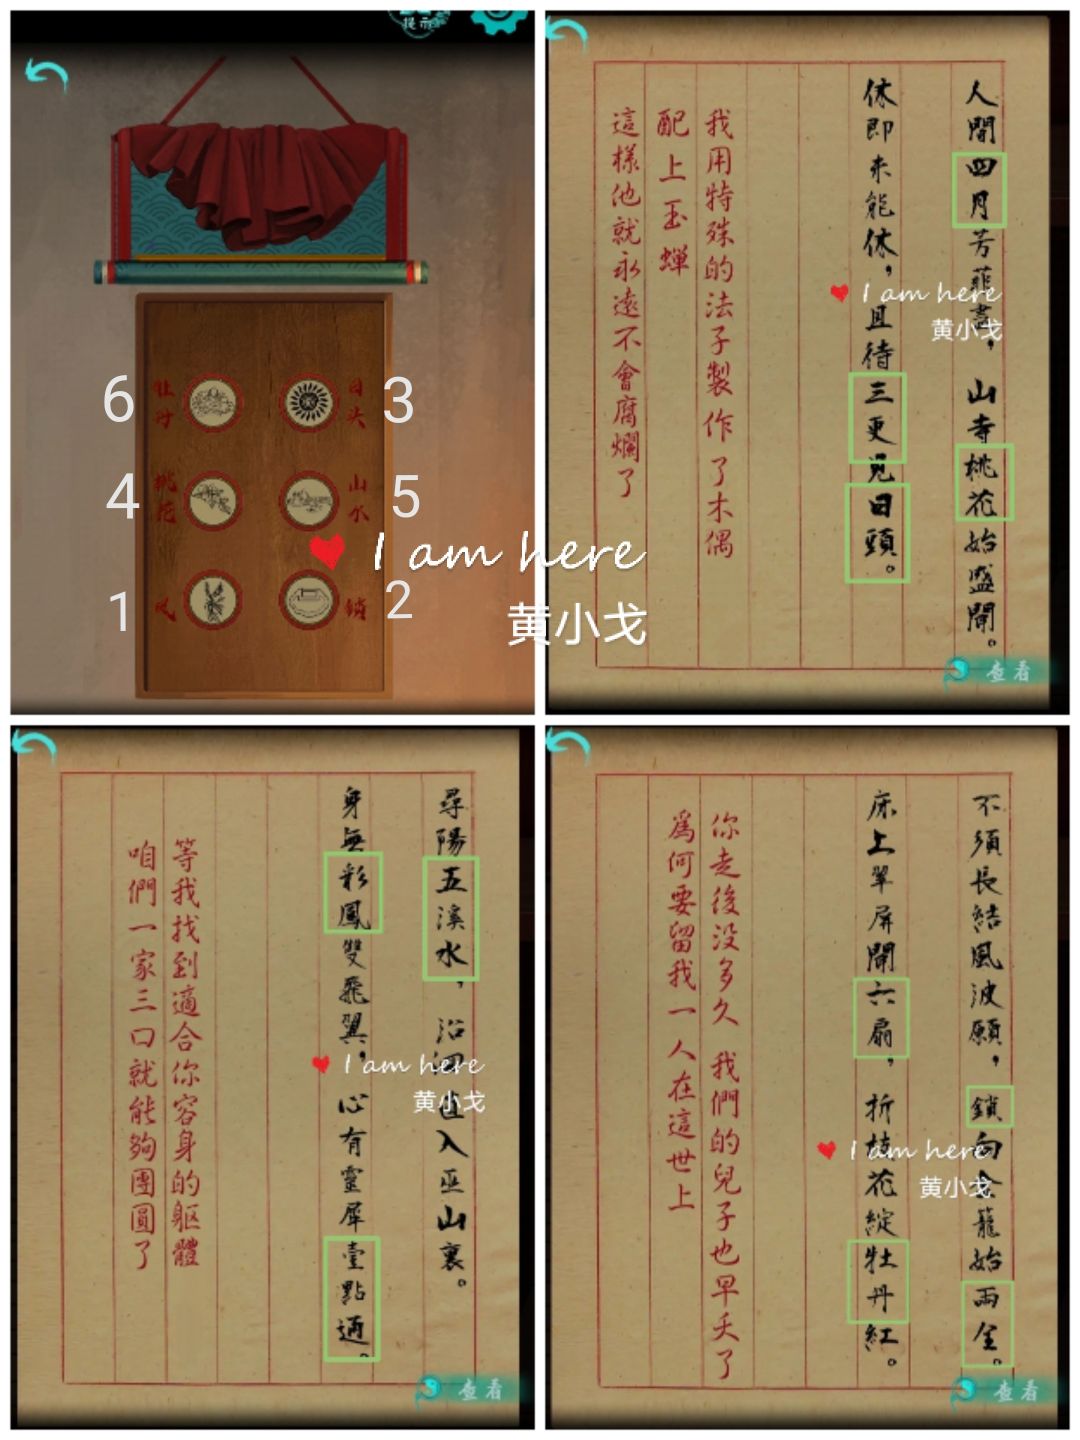 提示
6
牡丹
日头
3
4
桃花
山水
5
1
鎖
2
I am here
黄小戈
人間四月芳菲盡，山寺桃花始盛開。
休即未能休，且待三更見日頭。
我用特殊的法子製作了木偶
配上玉蟬
這樣他就永遠不會腐爛了
I am here
黄小戈
查看
尋陽五溪水，沿洄直入巫山裏。
身無彩鳳雙飛翼，心有靈犀壹點通。
等我找到適合你容身的軀體
咱們一家三口就能夠團圓了
I am here
黄小戈
查看
不須長結風波願，鎖向金籠始兩全。
床上翠屏開六扇，折枝花綻牡丹紅。
你走後没多久 我們的兒子也早夭了
爲何要留我一人在這世上
I am here
黄小戈
查看